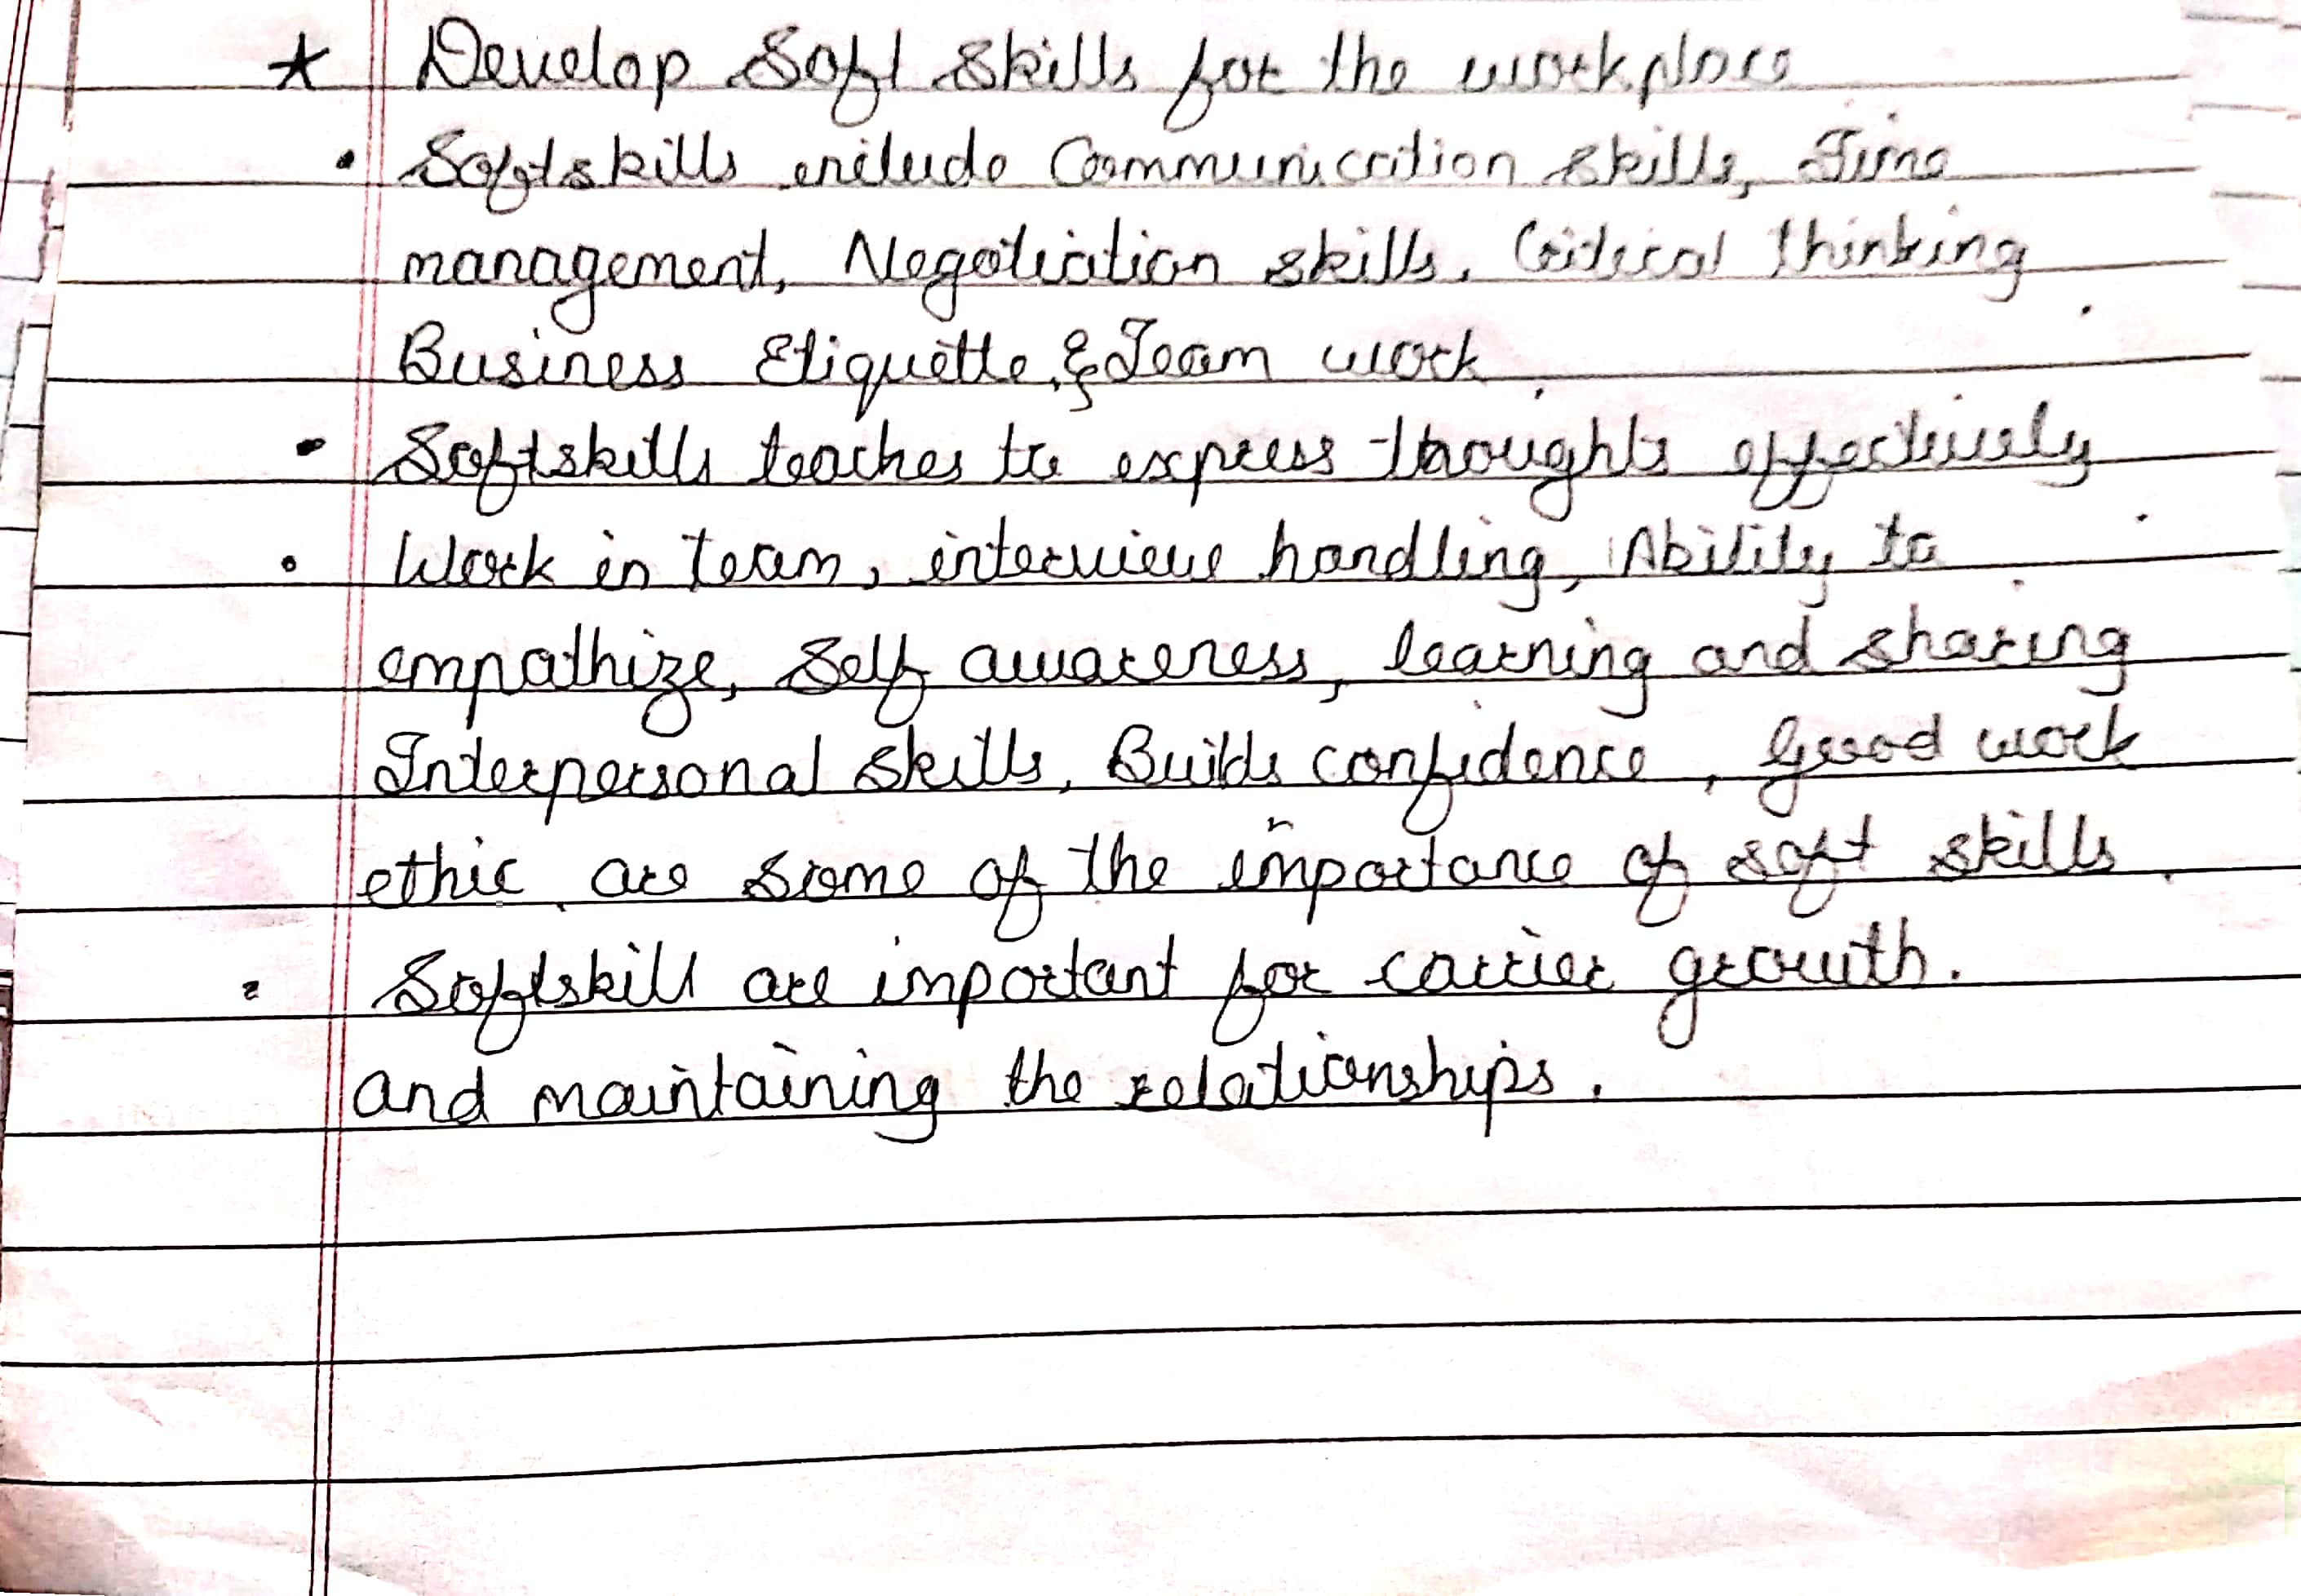 ★ Develop Soft Skills for the workplace
• Softskills include Communication skills, Time
management, Negotiation skills, Critical thinking
Business Etiquette, & Team work
• Softskills teaches to express thoughts effectively
• Work in team, interview handling, Ability to
empathize, Self awareness, learning and sharing
Interpersonal skills, Builds confidence, Good work
ethic are some of the importance of soft skills.
• Softskill are important for carrier growth.
and maintaining the relationships.